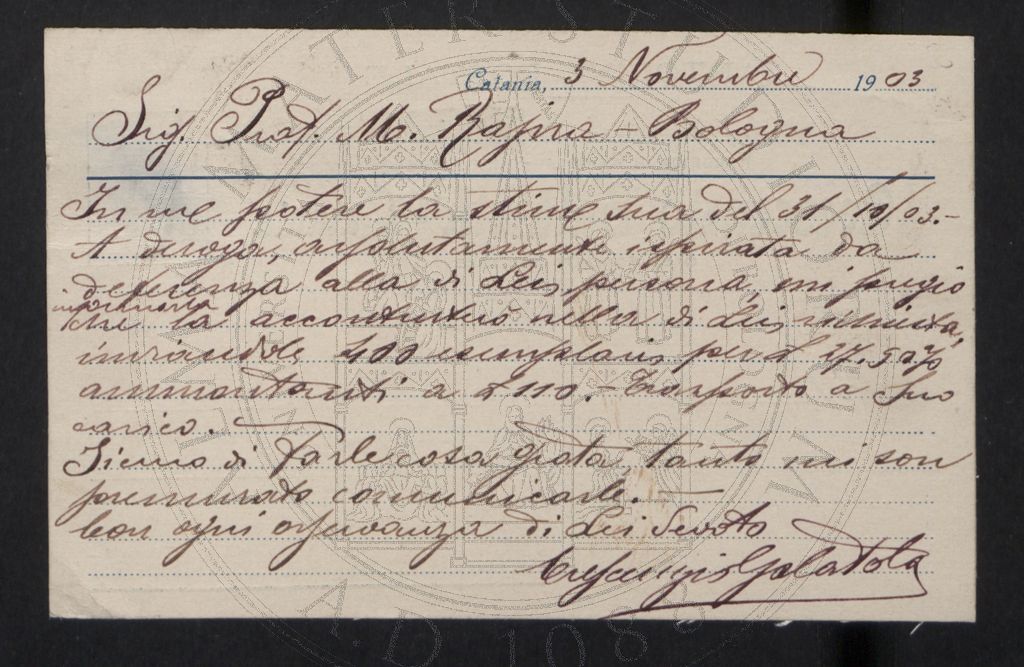 Catania, 3 Novembre 1903
Sig. Prof. M. Rajna - Bologna
In me potere la stim. sua del 31/10/03.-
A deroga, assolutamente ispirata da
deferenza alla di Lei persona, mi pregio
informarla
che la accontenterò nella di Lei richiesta,
inviandole 400 esemplari, per £ 27.50 %
ammontanti a £ 110. - Trasporto a Suo
carico. -
Sicuro di farle cosa grata, tanto mi son
premurato comunicarle. -
Con ogni osservanza di Lei Devoto
Galatola
ALMA MATER STUDIORUM
A.D. 1088